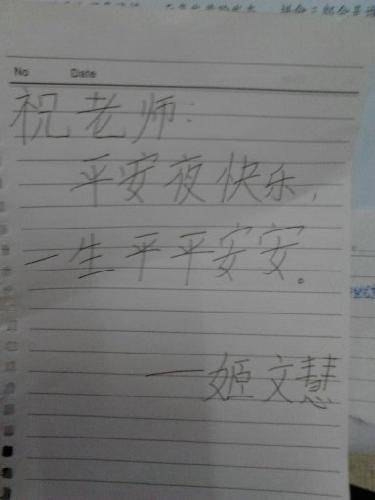 No Date
祝老师：
平安夜快乐，
一生平平安安。
——姬文慧